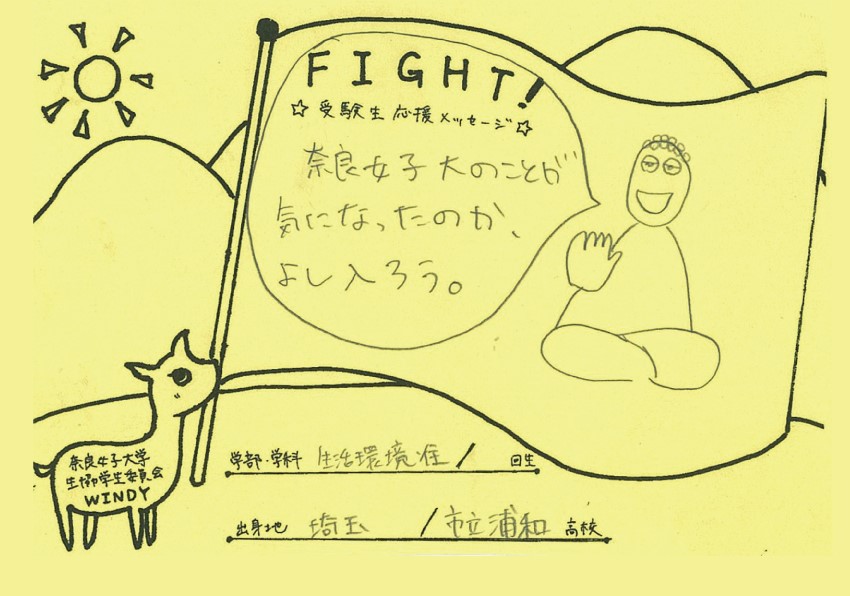 FIGHT!
☆受験生応援メッセージ☆
奈良女子大のことが
気になったのか、
よし入ろう。
学部・学科 生活環境 / 回生
出身地 埼玉 / 市立浦和 高校
奈良女子大学
生協学生委員会
WINDY